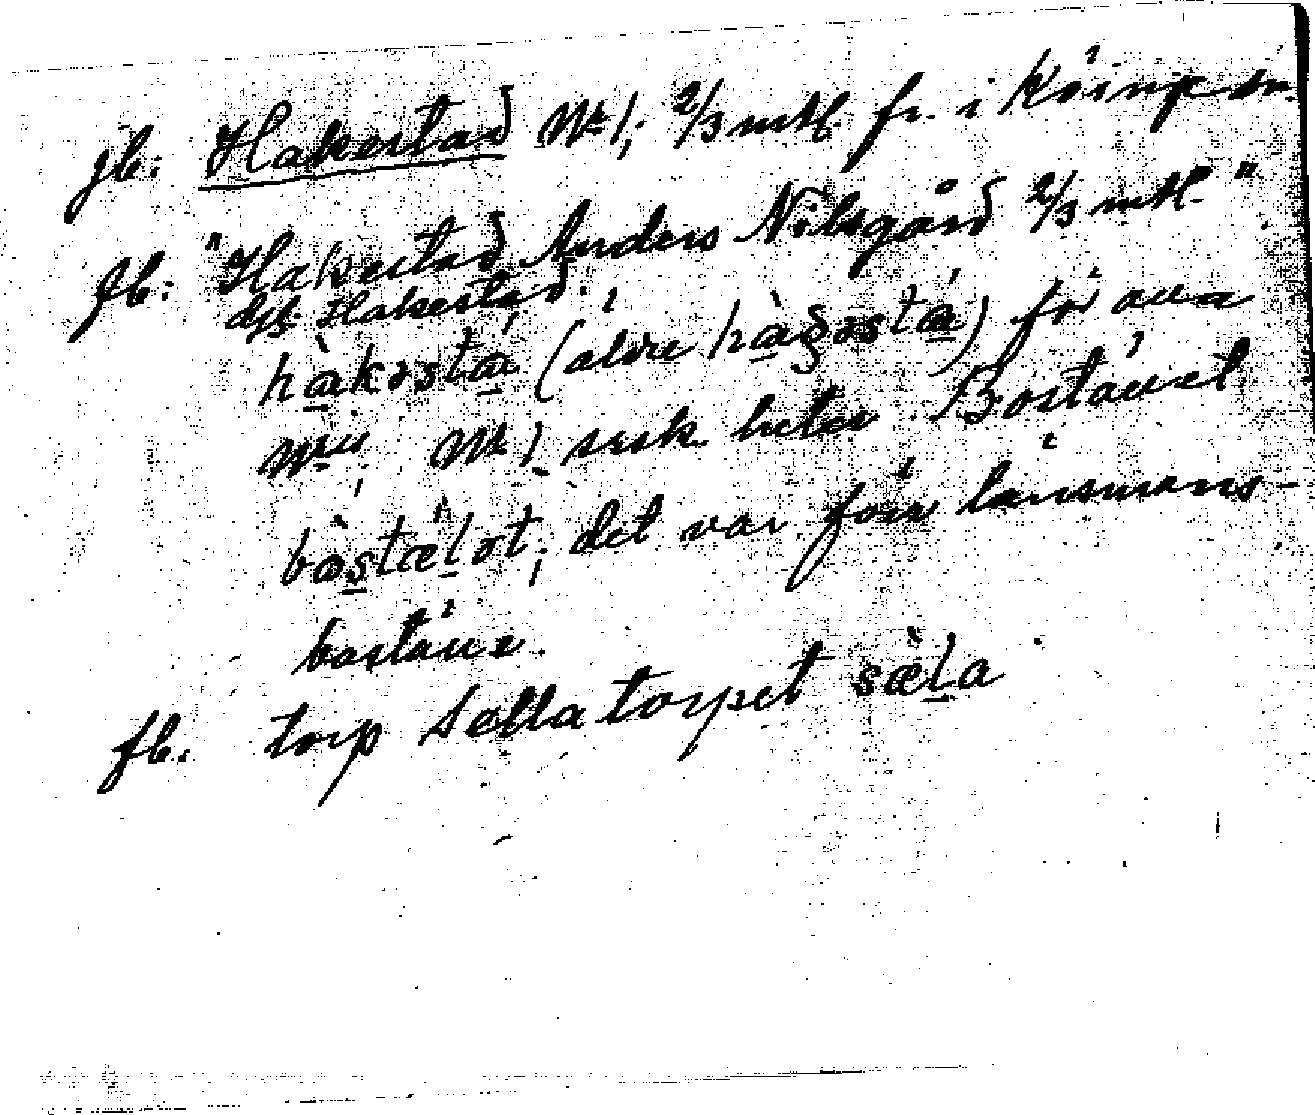 jb: Hakestad Nr 1; 2/3 mtl. fr. i
fb: "Hakestad Anders Nilsgård 2/3 mtl."
djb. Hakestad.
hàkəstá (äldre hàgəstá) för
Nr 1 resk. heter Bostället
bòstælət; det var förr länsmans-
boställe.
fb. torp Sellatorpet sæ̀la